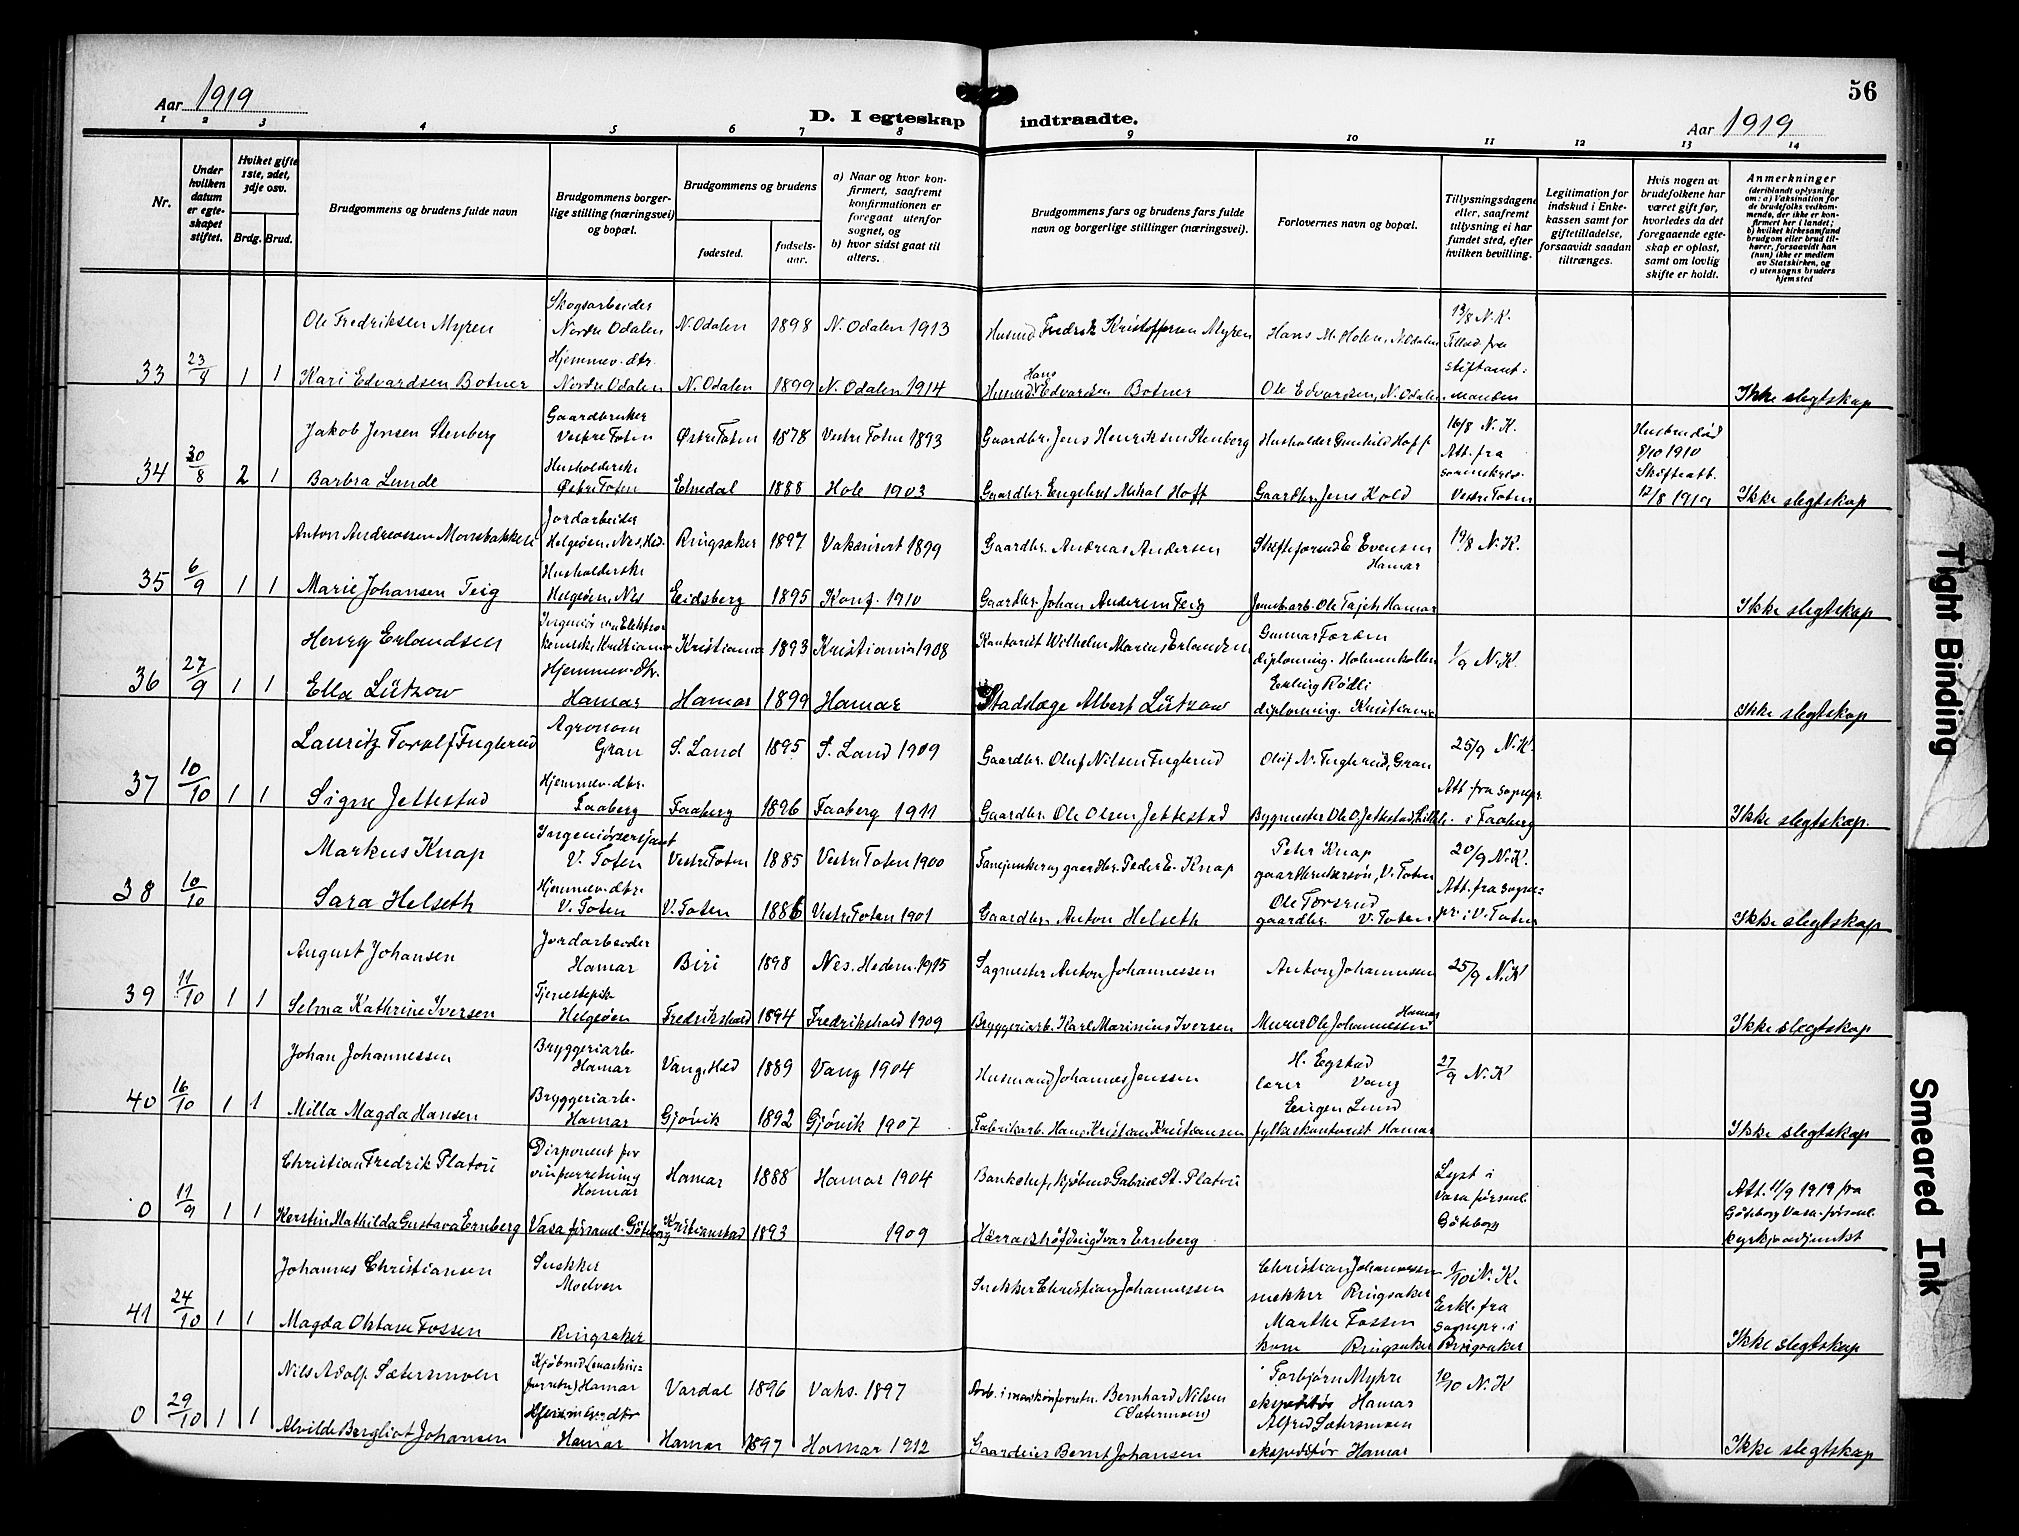 56
Aar 1919
D. I egteskap indtraadte.
Aar 1919
1 2 3 4 5 6 7 8 9 10 11 12 13 14
Nr.
Under hvilken datum er egte-skapet stiftet.
Hviket gifte 1ste, 2det, 3dje osv.
Brdg. Brud.
Brudgommens og brudens fulde navn
Brudgommens borger-lige stilling (næringsvei) og bopæl.
Brudgommens og brudens
fødested.
fødsels-aar.
a) Naar og hvor kon-firmert, saafremt konfirmationen er foregaat utenfor sognet, og
b) hvor sidst gaat til alters.
Brudgommens fars og brudens fars fulde navn og borgerlige stillinger (næringsvei).
Forlovernes navn og bopæl.
Tillysningsdagene eller, saafremt tillysning ei har fundet sted, efter hvilken bevilling.
Legitimation for indskud i Enke-kassen samt for giftetilladelse, forsaavidt saadan tiltrænges.
Hvis nogen av brudefolkene har været gift før, hvorledes da det foregaaende egte-skap er opløst, samt om lovlig skifte er holdt.
Anmerkninger
(deriblandt oplysning om: a) Vaksination for de brudefolks vedkom-mende, der ikke er kon-firmert her i landet; b) hvilket kirkesamfund brudgom eller brud til-hører, forsaavidt han (hun) ikke er medlem av Statskirken, og c) utensogns bruders hjemsted
Ole Fredriksen Myren Skogsarbeider Nordre Odalen N. Odalen 1898 N. Odalen 1913 Husmd Fredrik Kristoffersen Myren Hans M. Holen, N. Odalen 13/8 N. K. Tillad. fra stiftamt-
33 23/8 1 1 Kari Edvardsen Botner Hjemmev. dtr. Nordre Odalen N. Odalen 1899 N. Odalen 1914 Husmd Hans Edvardsen Botner Ole Edvardsen, N. Odalen manden Ikke slegtskap
Jakob Jensen Stenberg Gaardbruker Vestre Toten Østre Toten 1878 Vestre Toten 1893 Gaardbr. Jens Henriksen Stenberg Husholder Gunhild Hoff 16/8 N. K. Att. fra Hustru død 8/10 1910
34 30/8 2 1 Barbra Lunde Husholderske Østre Toten Etnedal 1888 Hole 1903 Gaardbr. Engebret Mikal Hoff Gaardbr. Jens Kold sorenskriv. Vestre Toten Skifteatt. 12/8 1919 Ikke slegtskap
Anton Andreassen Monsbakken Jordarbeider Helgeøen, Nes, Hed. Ringsaker 1897 Vaksinert 1899 Gaardbr. Andreas Andersen Skifteformd E. Evensen Hamar 19/8 N. K.
35 6/9 1 1 Marie Johansen Teig Husholderske Helgeøen, Nes Eidsberg 1895 Konf. 1910 Gaardbr. Johan Andersen Teig Jernb.arb. Ole Tajet, Hamar Ikke slegtskap
Henry Erlandsen Kristiania 1893 Kristiania 1908 Kontorist Wilhelm Marius Erlandsen Gunnar Førden diploming. Holmenkollen 1/9 N. K.
36 27/9 1 1 Ella Lützow Hjemmev. dtr. Hamar Hamar 1899 Hamar Stadslæge Albert Lützow Erling Rødli diploming. Kristiania Ikke slegtskap
Lauritz Torolf Fuglerud Agronom Gran S. Land 1895 S. Land 1909 Gaardbr. Oluf Nilsen Fuglerud Oluf N. Fuglerud, Gran 25/9 N. K.
37 10/10 1 1 Signe Jettestad Hjemmev. dtr. Faaberg Faaberg 1896 Faaberg 1911 Gaardbr. Ole Olsen Jettestad Bygmester Ole O. Jettestad, Lilleh. Att. fra sognepr. i Faaberg Ikke slegtskap.
Markus Knap Ingeniørsersjant V. Toten Vestre Toten 1885 Vestre Toten 1900 Fanejunker og gaardbr. Peder E. Knap Peter Knap gaardbrukersøn, V. Toten 20/9 N. K.
38 10/10 Sara Helseth Hjemmev. dtr. V. Toten V. Toten 1886 Vestre Toten 1901 Gaardbr. Anton Helseth Ole Torsrud gaardbr. V. Toten Att. fra sogne-pr. i V. Toten Ikke slegtskap
August Johansen Jordarbeider Hamar Biri 1898 Nes. Hedem. 1915 Sagmester Anton Johannessen Anton Johannessen 25/9 N. K
39 11/10 1 1 Selma Kathrine Iversen Tjenestepik. Helgeøen Fredrikshald 1894 Fredrikshald 1909 Bryggeriarb. Karl Marinius Iversen Murer Ole Johannessen Hamar Ikke slegtskap
Johan Johannessen Bryggeriarb. Hamar Vang, Hed 1889 Vang 1904 Husmand Johannes Jenssen H. Egstad lærer Vang 27/9 N. K
40 16/10 1 1 Milla Magda Hansen Bryggeriarb. Hamar Gjøvik 1892 Gjøvik 1907 Fabrikarb. Hans Kristian Kristiansen Eugen Lund fylkeskontorist Hamar Ikke slegtskap
Christian Fredrik Platou Disponent for vinforretning Hamar Hamar 1888 Hamar 1904 Bankchef, Kjøbmd Gabriel St. Platou Lyst i Vasa førsaml. Göteborg Att. 11/9 1919 fra
0 11/9 1 1 Kerstin Mathilda Gustava Ernberg Vasa førsaml. Göteborg Kristianstad 1893 1909 Häradshöfding Ivar Ernberg Göteborg Vasa førsaml. kyrkoadjunkt
Johannes Christiansen Snekker Moelven Snekker Christian Johannessen Christian Johannessen snekker Ringsaker 1/10 N. K.
41 24/10 1 1 Magda Oktave Fossen Ringsaker Marthe Fossen kone Ringsaker Erkl. fra sognepr. i Ringsaker Ikke slegtskap
Nils Adolf Sætersmoen Kjøbmd (maskin-forretn) Hamar Vardal 1896 Vaks. 1897 Arb. i maskinforretn. Bernhard Nilsen (Sætermoen) Torbjørn Myhre ekspeditør Hamar 10/10 N. K
0 29/10 1 1 Alvilde Bergliot Johansen Hjemmev. dtr. Hamar Hamar 1897 Hamar 1912 Gaardeier Bernt Johansen Alfred Sætersmoen ekspeditør Hamar Ikke slegtskap
Tight Binding
Smeared Ink